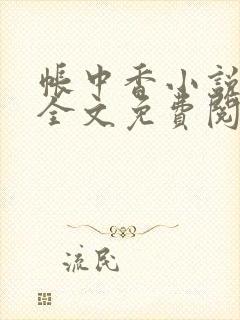 帳中香小說
全文免費閱
流民